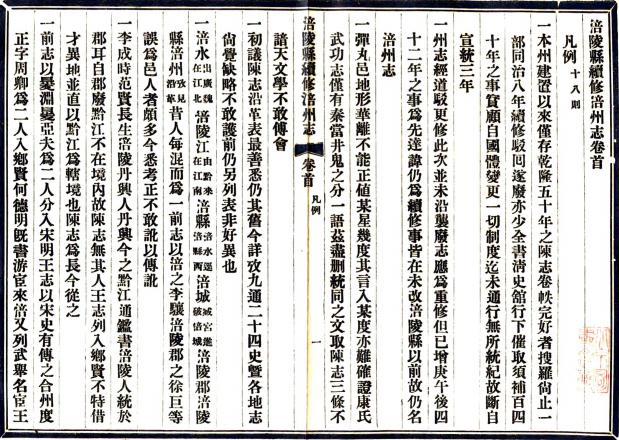 涪陵縣續修涪州志卷首
凡例十八則
一本州建置以來僅存乾隆五十年之陳志卷帙完好者搜羅尙止一
部同治八年續修駁回遂廢亦少全書淸史舘行下催取須補百四
十年之事實顧自國體變更一切制度迄未通行無所統紀故斷自
宣統三年
一州志經道駁更修此次並未沿襲廢志應爲重修但已增庚午後四
十二年之事爲先達諱仍爲續修事皆在未改涪陵縣以前故仍名
涪州志
一彈丸邑地形華離不能正値某星幾度其言入某度亦難確證康氏
武功志僅有秦當井鬼之分一語玆盡刪統同之文取陳志三條不
涪陵縣續修涪州志
卷首
凡例
一
諳天文學不敢傅會
一初議陳志沿革表最善悉仍其舊今詳攷九通二十四史曁各地志
尙覺缺略不敢護前仍另列表非好異也
一涪水出廣魏在江北涪陵江由黔來在江南涪縣涪水逕涪縣西涪城臧宮進破涪城涪陵郡涪陵
縣涪州攷見沿革昔人每混而爲一前志以涪之李驤涪陵郡之徐巨等
誤爲邑人者頗多今悉考正不敢訛以傳訛
一李成時范賢長生涪陵丹興人丹興今之黔江通鑑書涪陵人統於
郡耳自郡廢黔江不在境內故陳志無其人王志列入鄕賢不特借
才異地並直以黔江爲轄境也陳志爲長今從之
一前志以㬊淵㬊亞夫爲二人分入宋明王志以宋史有傳之合州度
正字周卿爲二人入鄕賢何德明旣書游宦來涪又列武舉名宦王